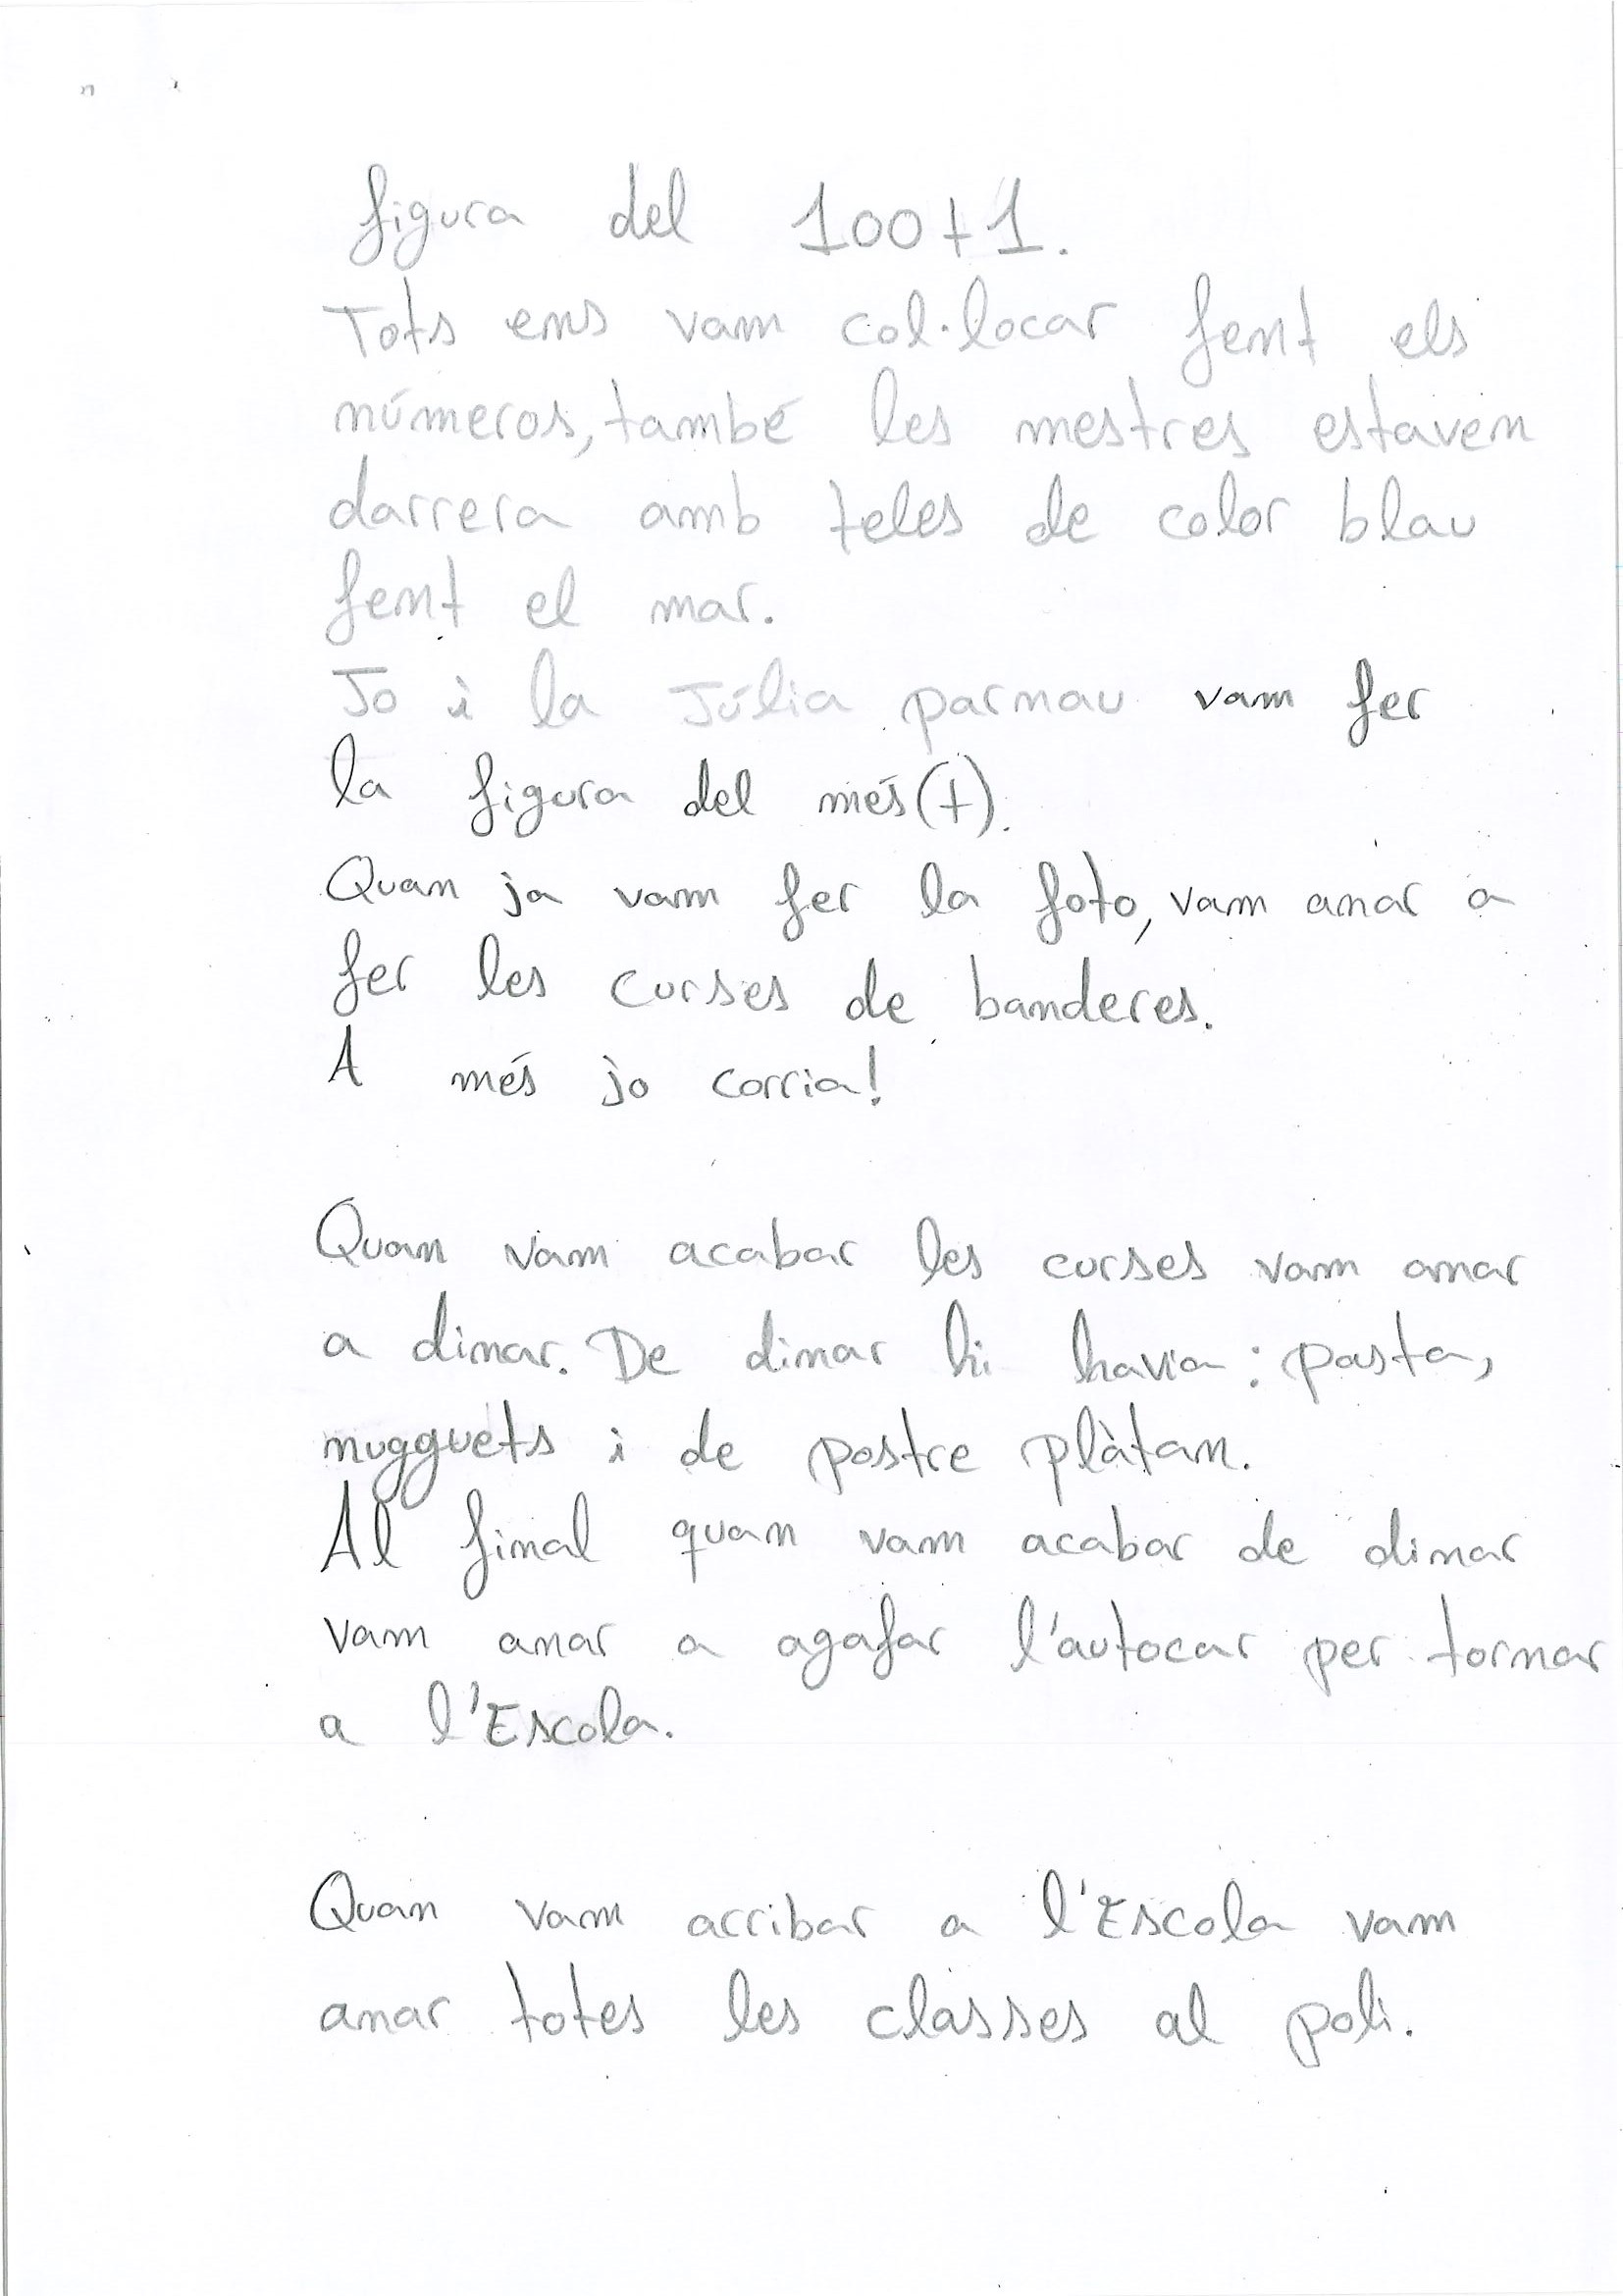 figura del 100+1.
Tots ens vam col·locar fent els
números, també les mestres estaven
darrera amb teles de color blau
fent el mar.
Jo i la Júlia parnau vam fer
la figura del més(+).
Quan ja vam fer la foto, vam anar a
fer les curses de banderes.
A més jo corria!
Quan vam acabar les curses vam anar
a dinar. De dinar hi havia: pasta,
nugguets i de postre plàtan.
Al final quan vam acabar de dinar
vam anar a agafar l'autocar per tornar
a l'Escola.
Quan vam arribar a l'Escola vam
anar totes les classes al poli.